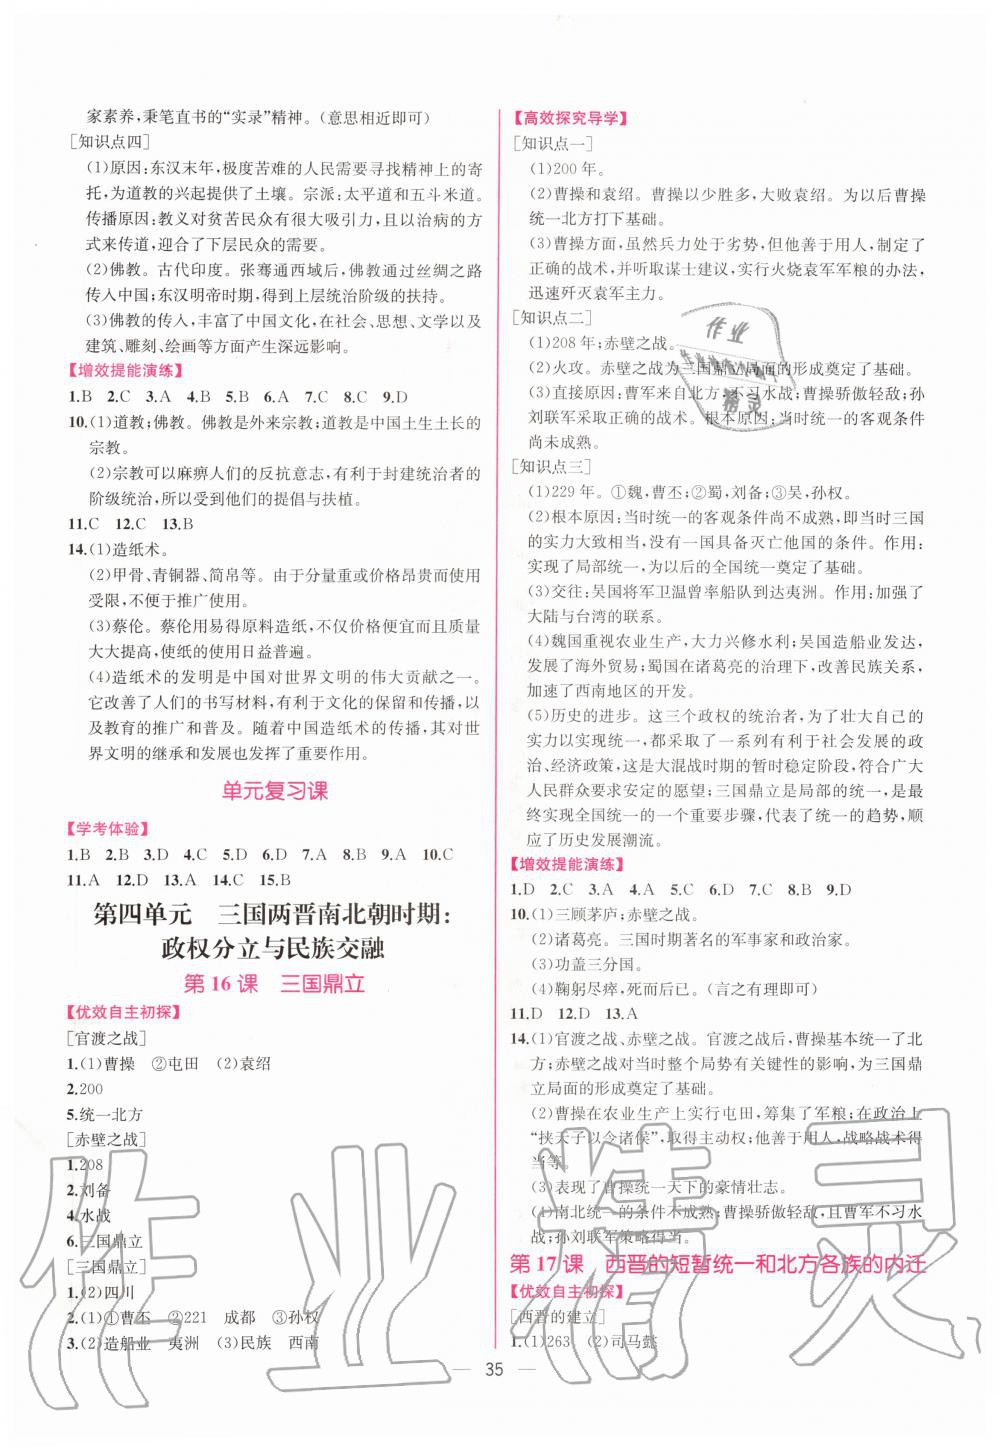 家素养,秉笔直书的“实录”精神。(意思相近即可)
[知识点四]
(1)原因:东汉末年,极度苦难的人民需要寻找精神上的寄
托,为道教的兴起提供了土壤。宗派:太平道和五斗米道。
传播原因:教义对贫苦民众有很大吸引力,且以治病的方
式来传道,迎合了下层民众的需求。
(2)佛教。古代印度。张骞通西域后,佛教通过丝绸之路
传入中国;东汉明帝时期,得到上层统治阶级的扶持。
(3)佛教的传入,丰富了中国文化,在社会、思想、文学以及
建筑、雕刻、绘画等方面产生深远影响。
【增效提能演练】
1.B 2.C 3.A 4.B 5.B 6.A 7.C 8.C 9.D
10.(1)道教;佛教。佛教是外来宗教;道教是中国土生土长的
宗教。
(2)宗教可以麻痹人们的反抗意志,有利于封建统治者的
阶级统治,所以受到他们的提倡与扶植。
11.C 12.C 13.B
14.(1)造纸术。
(2)甲骨、青铜器、简帛等。由于分量重或价格昂贵而使用
受限,不便于推广使用。
(3)蔡伦。蔡伦用易得原料造纸,不仅价格便宜而且质量
大大提高,使纸的使用日益普遍。
(4)造纸术的发明是中国对世界文明的伟大贡献之一。
它改善了人们的书写材料,有利于文化的保留和传播,以
及教育的推广和普及。随着中国造纸术的传播,其对世
界文明的继承和发展也发挥了重要作用。
单元复习课
【学考体验】
1.B 2.B 3.D 4.C 5.D 6.D 7.A 8.B 9.A 10.C
11.A 12.D 13.A 14.C 15.B
第四单元 三国两晋南北朝时期:
政权分立与民族交融
第16课 三国鼎立
【优效自主初探】
[官渡之战]
1.(1)曹操 ②屯田 (2)袁绍
2.200
5.统一北方
[赤壁之战]
1.208
2.刘备
4.水战
6.三国鼎立
[三国鼎立]
1.(2)四川
2.(1)①曹丕 ②221 成都 ③孙权
3.(2)造船业 夷洲 (3)民族 西南
【高效探究导学】
[知识点一]
(1)200年。
(2)曹操和袁绍。曹操以少胜多,大败袁绍。为以后曹操
统一北方打下基础。
(3)曹操方面,虽然兵力处于劣势,但他善于用人,制定了
正确的战术,并听取谋士建议,实行火烧袁军军粮的办法,
迅速歼灭袁军主力。
[知识点二]
(1)208年;赤壁之战。
(2)火攻。赤壁之战为三国鼎立局面的形成奠定了基础。
(3)直接原因:曹军来自北方,不习水战;曹操骄傲轻敌;孙
刘联军采取正确的战术。根本原因:当时统一的客观条件
尚未成熟。
[知识点三]
(1)229年。①魏,曹丕;②蜀,刘备;③吴,孙权。
(2)根本原因:当时统一的客观条件尚不成熟,即当时三国
的实力大致相当,没有一国具备灭亡他国的条件。作用:
实现了局部统一,为以后的全国统一奠定了基础。
(3)交往:吴国将军卫温曾率船队到达夷洲。作用:加强了
大陆与台湾的联系。
(4)魏国重视农业生产,大力兴修水利;吴国造船业发达,
发展了海外贸易;蜀国在诸葛亮的治理下,改善民族关系,
加速了西南地区的开发。
(5)历史的进步。这三个政权的统治者,为了壮大自己的
实力以实现统一,都采取了一系列有利于社会发展的政
治、经济政策,这是大混战时期的暂时稳定阶段,符合广大
人民群众要求安定的愿望;三国鼎立是局部的统一,是最
终实现全国统一的一个重要步骤,代表了统一的趋势,顺
应了历史发展潮流。
【增效提能演练】
1.D 2.C 3.A 4.C 5.A 6.A 7.C 8.D 9.D
10.(1)三顾茅庐;赤壁之战。
(2)诸葛亮。三国时期著名的军事家和政治家。
(3)功盖三分国。
(4)鞠躬尽瘁,死而后已。(言之有理即可)
11.D 12.D 13.A
14.(1)官渡之战、赤壁之战。官渡之战后,曹操基本统一了北
方;赤壁之战对当时整个局势有关键性的影响,为三国鼎
立局面的形成奠定了基础。
(2)曹操在农业生产上实行屯田,筹集了军粮;在政治上
“挟天子以令诸侯”,取得主动权;他善于用人,战略战术得
当等。
(3)表现了曹操统一天下的豪情壮志。
(4)南北统一的条件不成熟;曹操骄傲轻敌,且曹军不习水
战;孙刘联军策略得当。
第17课 西晋的短暂统一和北方各族的内迁
【优效自主初探】
[西晋的建立]
1.(1)263 (2)司马懿
35
作业精灵